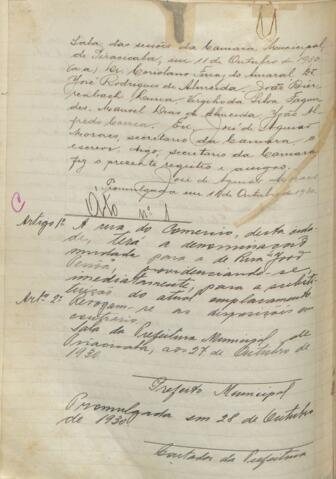 Sala das sessões da Camara Municipal
de Piracicaba, em 11 de Outubro de 1930.
(a.a) Dr. Coriolano Ferraz do Amaral, Dr.
José Rodrigues de Almeida, João
da Silva
des, Manoel Dias de Almeida, João Al-
fredo Correa. Eu, José de Aguiar
Moraes, secretario da Camara, o
escrevi. secretario da Camara
fiz o presente registro e assigno.
José de Aguiar Moraes
Promulgada em 11 de Outubro de 1930.
Acto nº 1
Artigo 1º A rua do Comercio, desta cida-
de, terá a denominação
mudada para a de Rua João
Pessôa, providenciando-se,
immediatamente, para a substi-
tuição do actual emplacamento.
Artº 2º Revogam-se as disposições em
contrario.
Sala da Prefeitura Municipal de
Piracicaba, aos 27 de Outubro de
1930.
Prefeito Municipal
Promulgada em 28 de Outubro
de 1930
Contador da Prefeitura